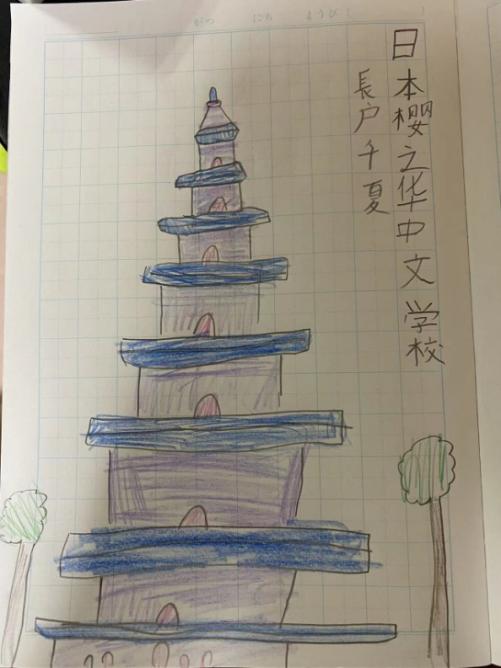 がつ にち ようび（ ）
日本樱之华中文学校
長户千夏